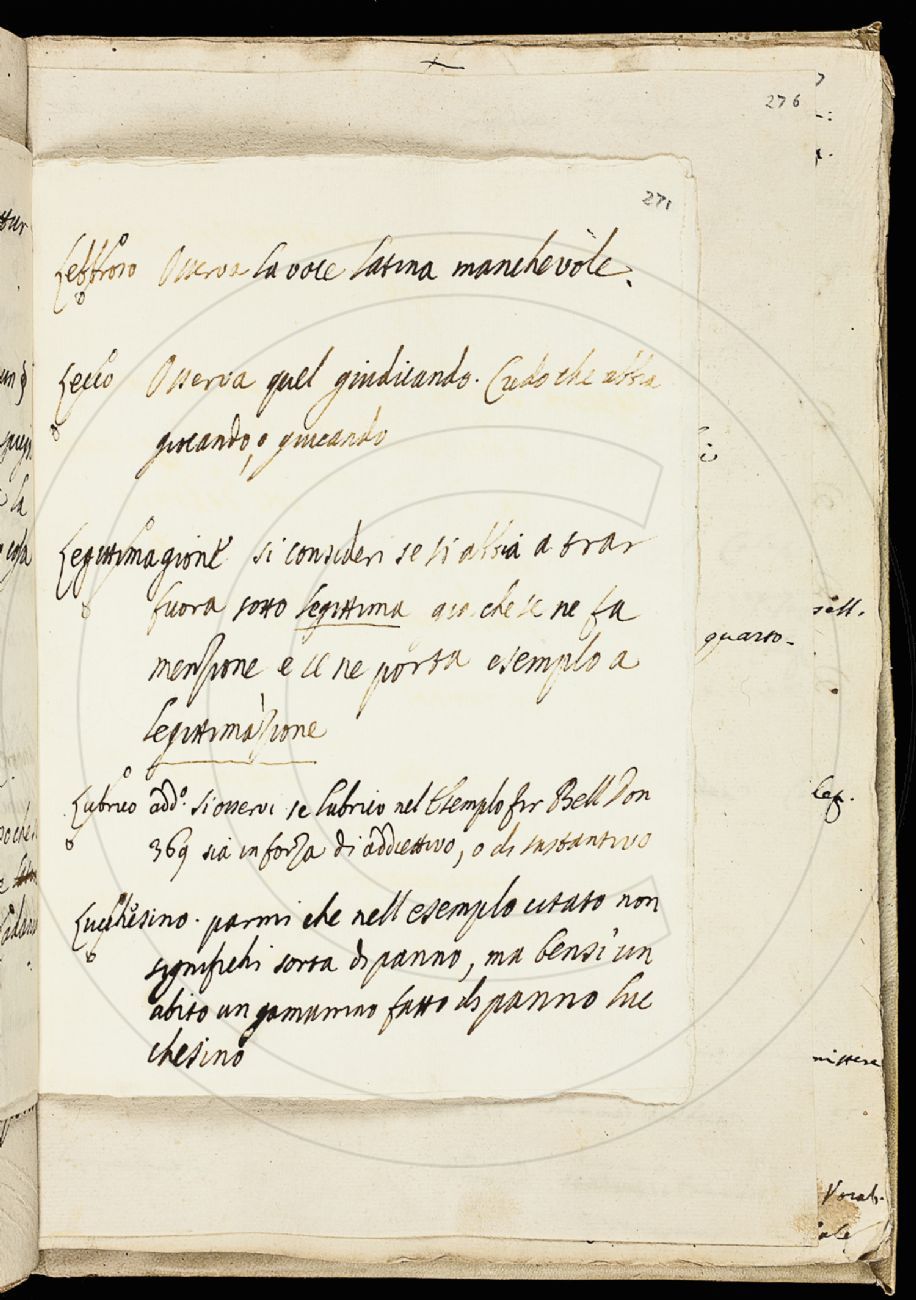 276
271
Lebbroso Osserva la voce latina manchevole.
Lecco Osserva quel giudicando. Credo che abbia
giocando, o giucando
Legittimagione si consideri se si abbia a trar
fuora sotto legittima già che se ne fa
menzione e se ne porta esemplo a
legittimazione
Lubrico add.º si osservi se lubrico nel Esemplo fir Bell Don
369 sia in forza di addiettivo, o di sustantivo
Lucchesino. parmi che nell esemplo citato non
significhi sorta di panno, ma bensi un
abito un gamurrino fatto di panno luc
chesino
quarto.
lez.
mettere
Vocab.